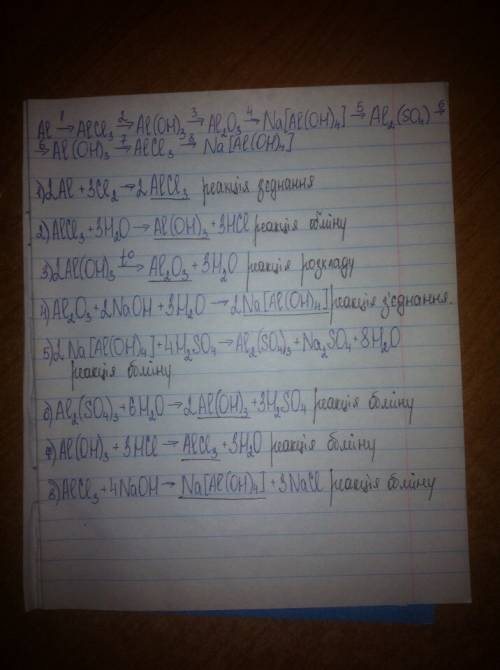 Al 1→ AlCl₃ 2→ Al(OH)₃ 3→ Al₂O₃ 4→ Na[Al(OH)₄] 5→ Al₂(SO₄) 6→
6→ Al(OH)₃ 7→ AlCl₃ 8→ Na[Al(OH)₄]
1) 2Al + 3Cl₂ → 2AlCl₃ реакція з'єднання
2) AlCl₃ + 3H₂O → Al(OH)₃ + 3HCl реакція обміну
3) 2Al(OH)₃ t°→ Al₂O₃ + 3H₂O реакція розкладу
4) Al₂O₃ + 2NaOH + 3H₂O → 2Na[Al(OH)₄] реакція з'єднання.
5) 2Na[Al(OH)₄] + 4H₂SO₄ → Al₂(SO₄)₃ + Na₂SO₄ + 8H₂O
реакція обміну
6) Al₂(SO₄)₃ + 6H₂O → 2Al(OH)₃ + 3H₂SO₄ реакція обміну
7) Al(OH)₃ + 3HCl → AlCl₃ + 3H₂O реакція обміну
8) AlCl₃ + 4NaOH → Na[Al(OH)₄] + 3NaCl реакція обміну